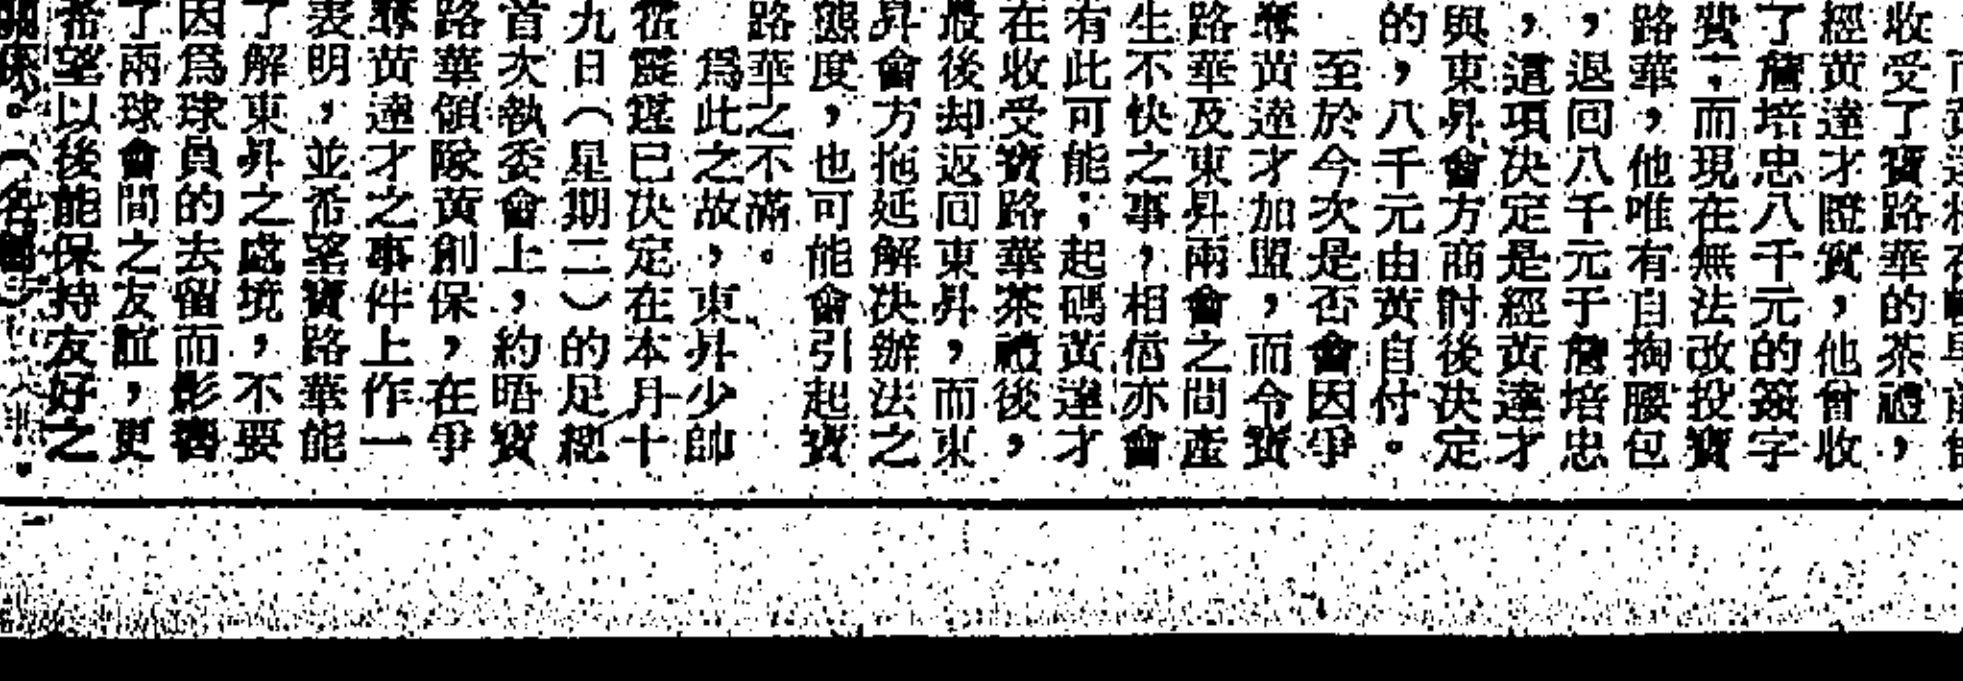 收受了寶路華的茶禮，
經黃達才證實，他曾收
了詹培忠八千元的簽字
費；而現在無法改投寶
路華，他唯有自掏腰包
，退回八千元于詹培忠
，這項决定是經黃達才
與東昇會方商討後决定
的，八千元由黃自付。
至於今次是否會因爭
奪黃達才加盟，而令寶
路華及東昇兩會之間產
生不快之事，相信亦會
有此可能；起碼黃達才
在收受寶路華茶禮後，
最後却返回東昇，而東
昇會方拖延解决辦法之
態度，也可能會引起寶
路華之不滿。
爲此之故，東昇少帥
霍震霆已决定在本月十
九日（星期二）的足總
首次執委會上，約晤寶
路華領隊黃創保，在爭
奪黃達才之事件上作一
表明，並希望寶路華能
了解東昇之處境，不要
因爲球員的去留而影響
了兩球會間之友誼，更
希望以後能保持友好之
關係。